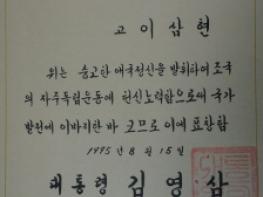 고 이 삼 현
위는 숭고한 애국정신을 발휘하여 조국
의 자주독립운동에 헌신노력함으로써 국가
발전에 이바지한 바 크므로 이에 표창함
1995 년 8 월 15 일
대통령 김 영 삼